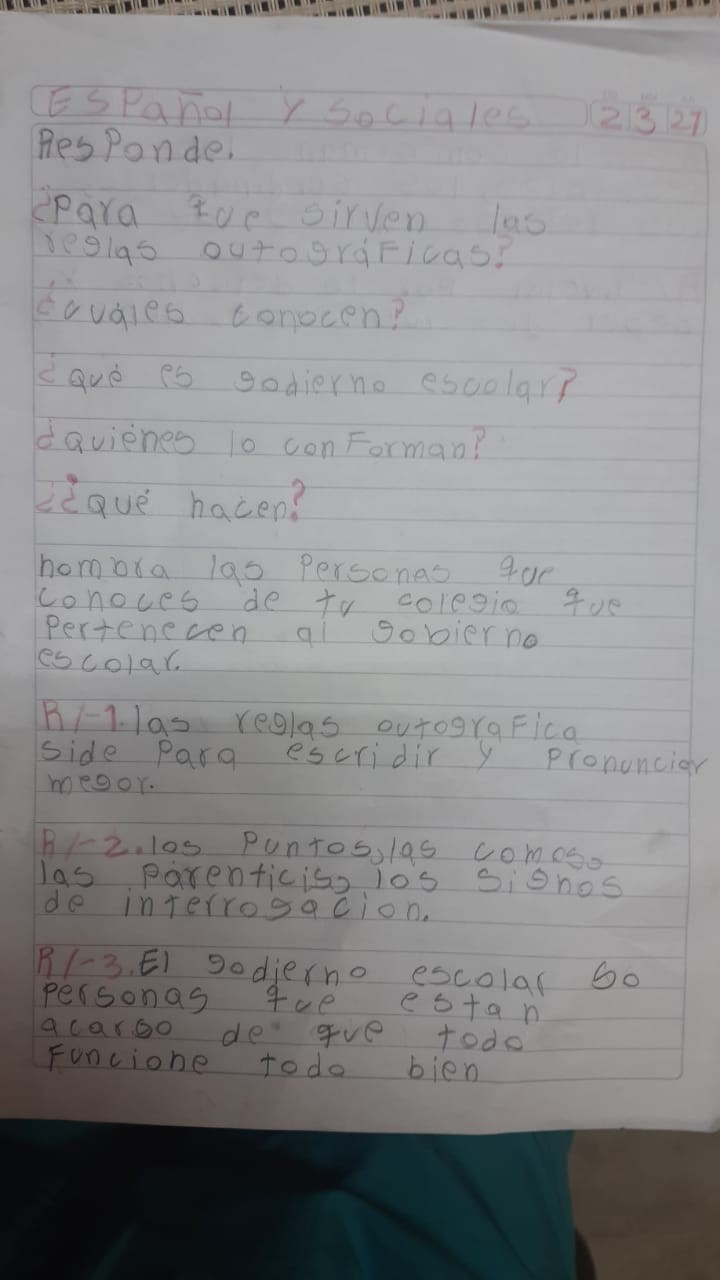 ESPañol y sociales 2 3 21
Responde.
¿Para que sirven las
reglas outográficas?
¿cuáles conocen?
¿qué es godierno escolar?
¿quiénes lo conForman?
¿¿qué hacen?
nombra las Personas que
conoces de tu colegio que
Pertenecen al gobierno
escolar.
R/-1. las reglas outograFica
side Para escridir y Pronunciar
megor.
R/-2. los Puntos, las comas,
las parenticis, los signos
de interrogacion.
R/-3. El godierno escolar so
personas que estan
acargo de que todo
Funcione todo bien